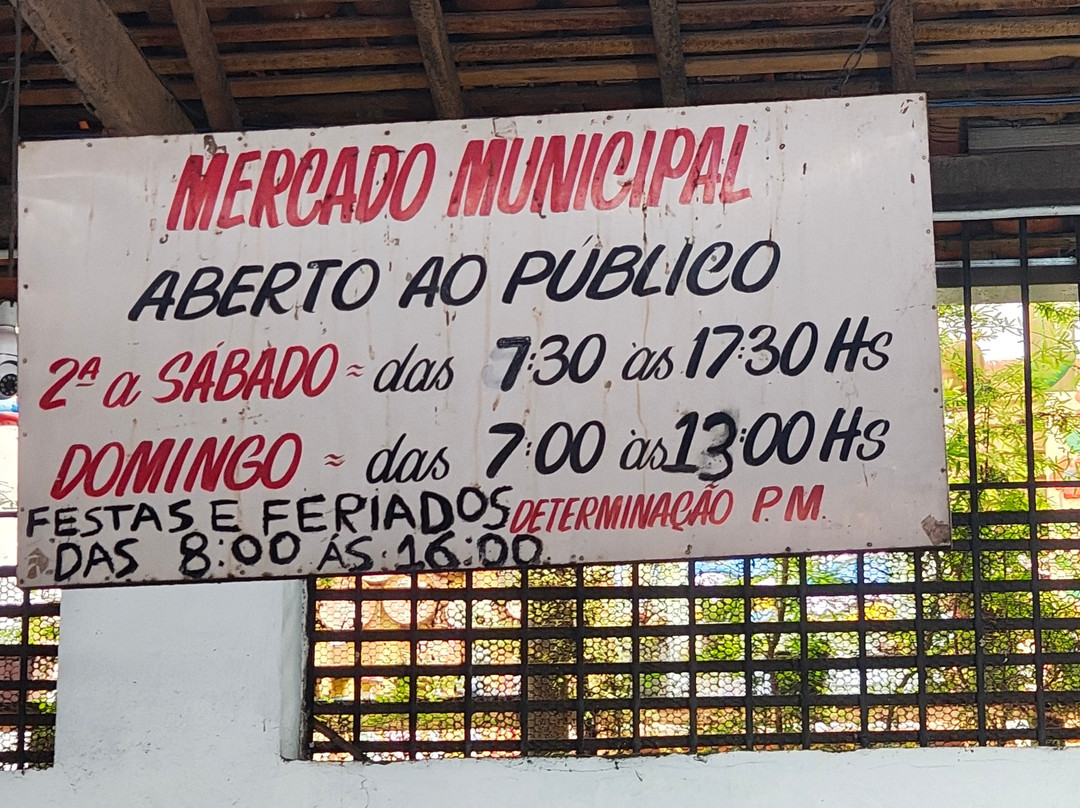 MERCADO MUNICIPAL
ABERTO AO PÚBLICO
2ª a SÁBADO ≈ das 7:30 às 17:30 Hs
DOMINGO ≈ das 7:00 às 13:00 Hs
FESTAS E FERIADOS DETERMINAÇÃO P.M.
DAS 8:00 ÁS 16:00